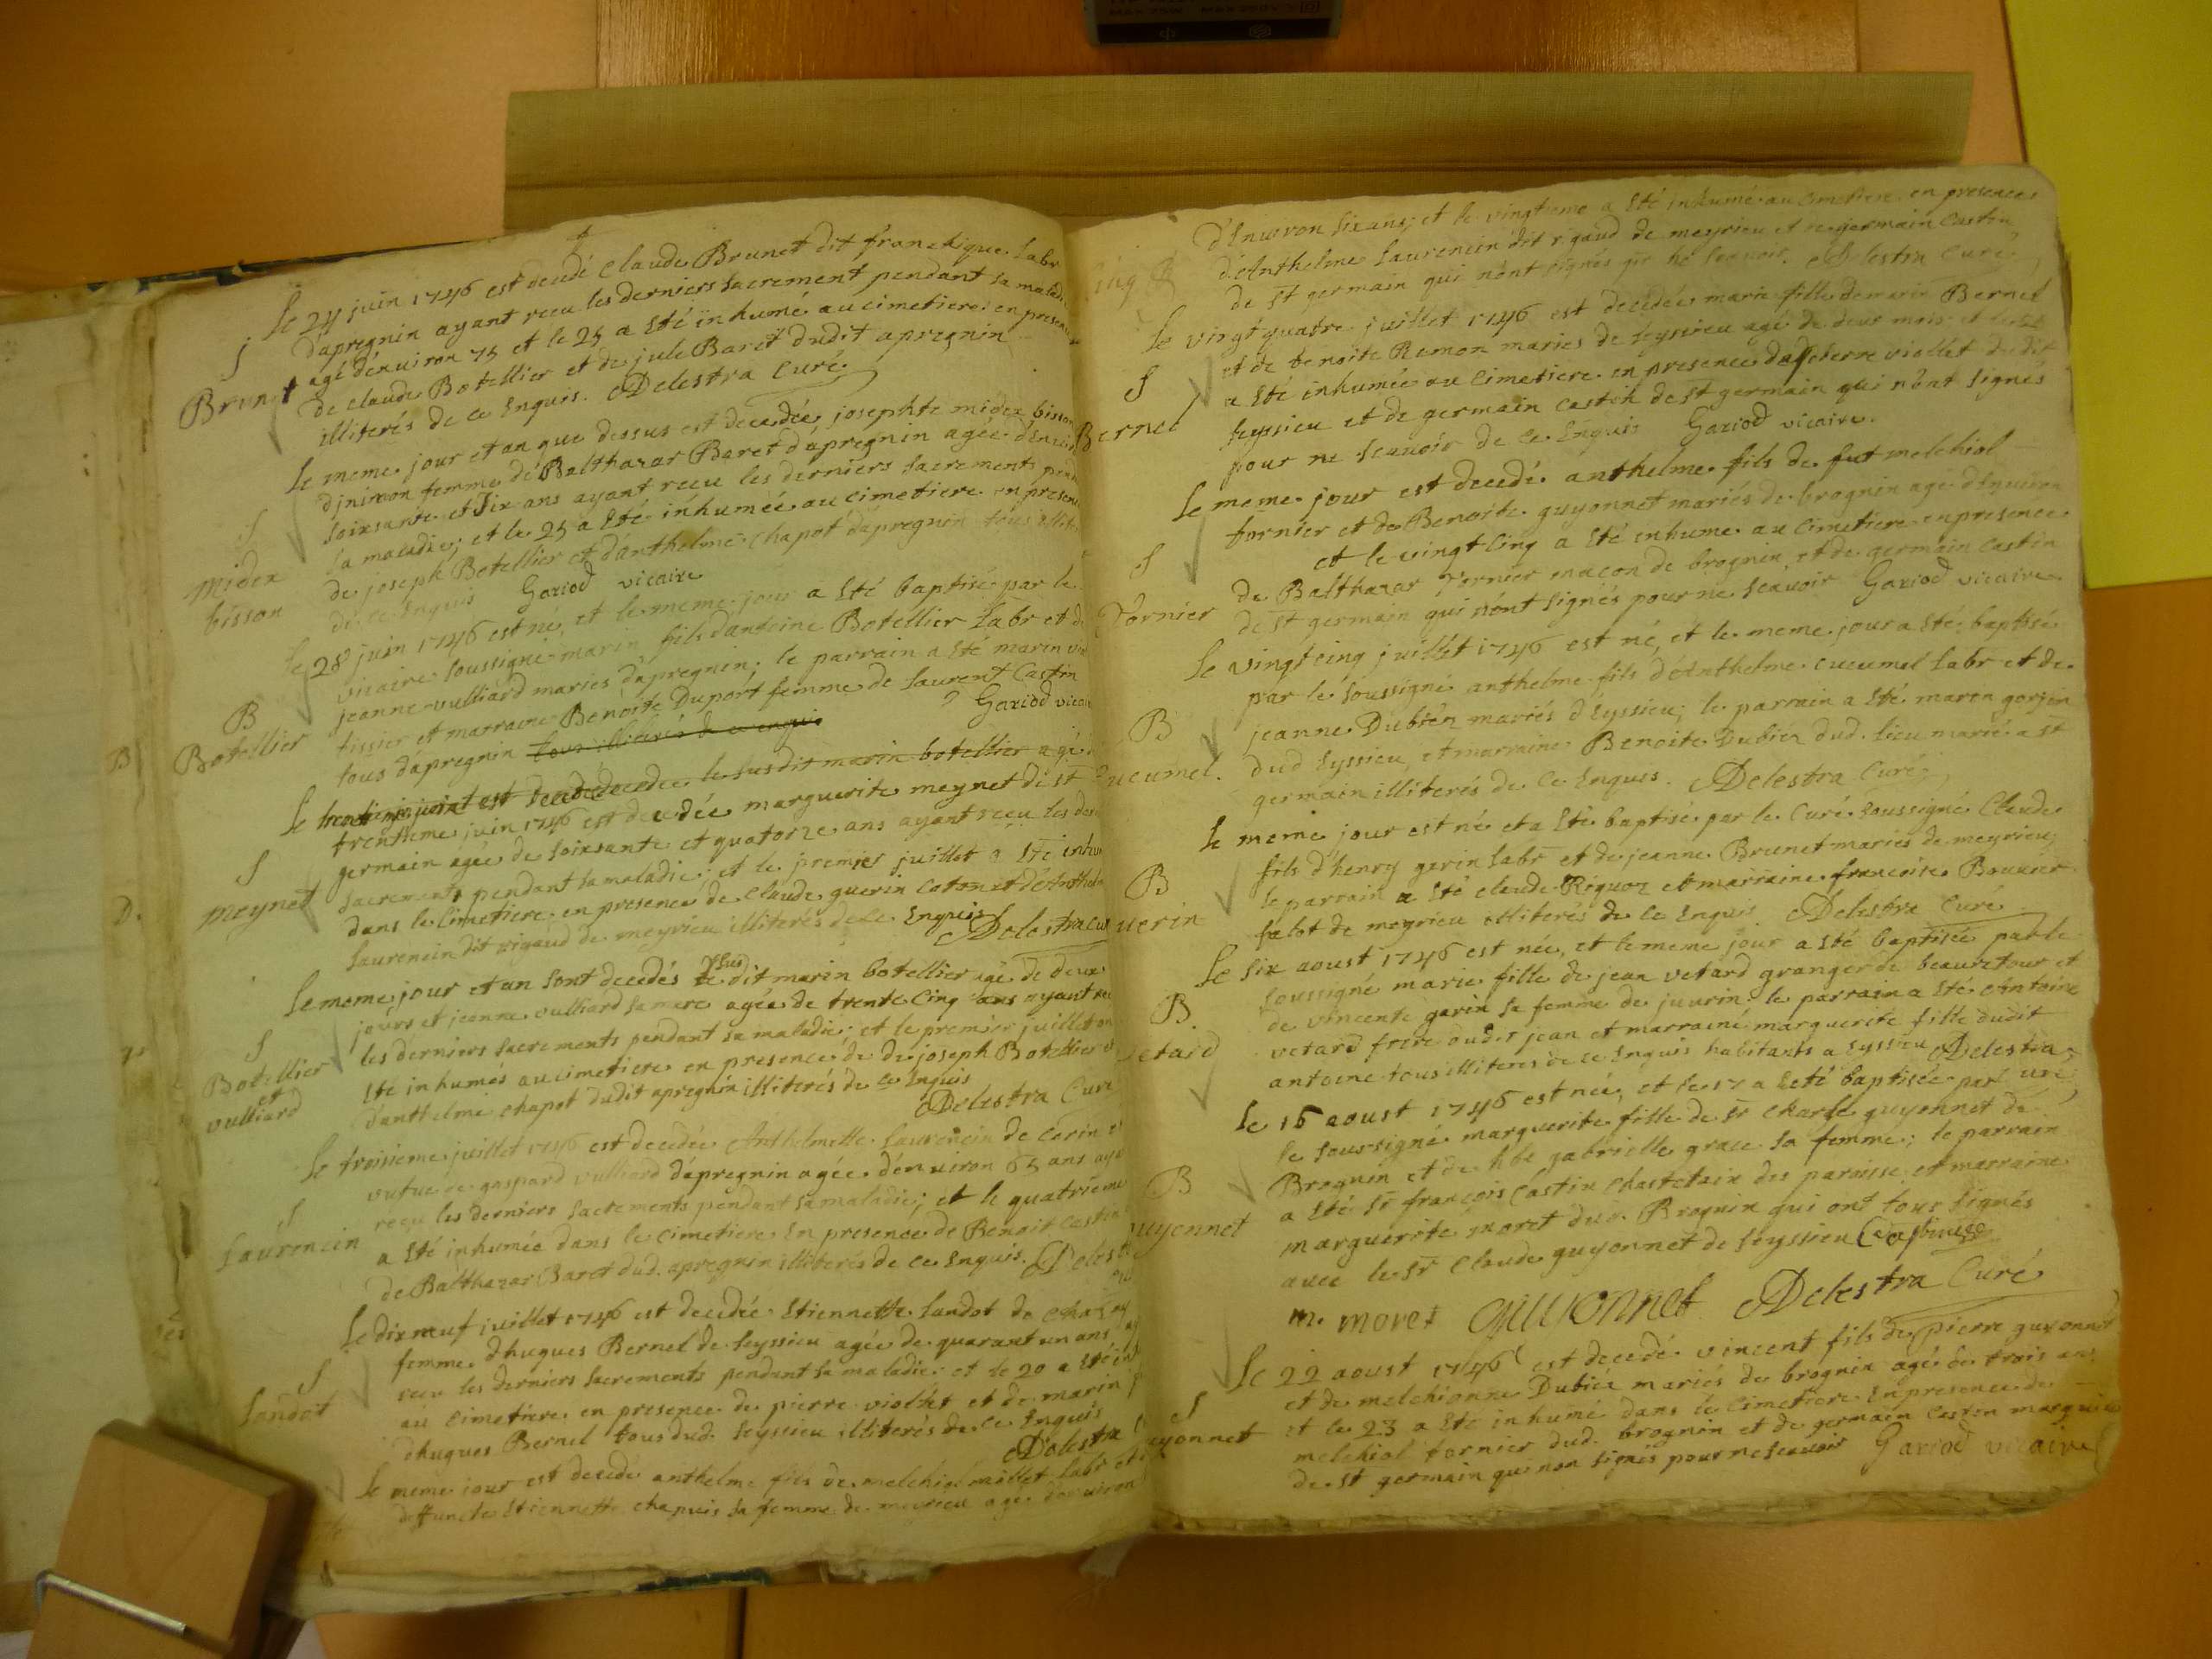 Le 24 juin 1746 est decedé Claude Brunet dit franchique Labr
d'apregnin ayant recu les derniers sacrement pendant sa maladi
agé d'enuiron 75 et le 25 a été inhumé au cimetiere en presen
Brunet
de claude Botellier et de jule Baret dudit apregnin
illiterés de ce Enquis. Delestra Curé
Le meme jour et an que dessus est decedée josephte midex bisson
femme de Balthazar Baret d'apregnin agée d'Enui
soixsante et Six ans ayant recu les derniers sacrements pend
sa maladie; et le 25 a été inhumée au cimetiere en presen
midex
bisson
de joseph Botellier et d'anthelme chapot d'apregnin tous illit
de ce Enquis Gariod vicaire
Le 28 juin 1746 est né, et le meme jour a été baptisé par le
vicaire soussigné marin fils d'antoine Botellier Labr et d
B
Botellier
jeanne vulliard mariés d'apregnin; le parrain a été marin
tissier et marraine Benoite Duport femme de laurent Castin
tous d'apregnin tous illiterés de ce enquis Gariod vicai
Le est decedee le susdit marin botellier agé
trentieme juin 1746 est decedée marguerite meynet de st
S
meynet
germain agée de soixsante et quatorze ans ayant recu les der
sacrements pendant sa maladie; et le premier juillet a été inhu
dans le Cimetiere en presence de Claude guerin Coton et d'Anthel
laurencin dit rigaud de meyrieu illiterés de ce Enquis
Delestra cu
Le meme jour et an sont decedés le susdit marin botellier agé de deux
jours et jeanne vulliard sa mere agée de trente Cinq ans ayant rec
S
Botellier
et
vulliard
les derniers sacrements pendant sa maladie; et le premier juillet on
été inhumés au cimetiere en presence de de joseph Botellier
d'anthelme chapot dudit apregnin illiterés de ce Enquis
Delestra Curé
Le troisieme juillet 1746 est decedée Anthelmette Laurencin de Corin
vefue de gaspard vulliard d'apregnin agée d'enuiron 65 ans aya
S
Laurencin
recu les derniers sacrements pendant sa maladie; et le quatrieme
a été inhumée dans le cimetiere En presence de Benoit Castin
de Balthazar Baret dud. apregnin illiterés de ce Enquis. Delest
Le dix neuf juillet 1746 est decedée Etiennette Landot de
femme d'hugues Bernel de seyssieu agée de quarant un ans
S
Landot
recu les derniers sacrements pendant sa maladie: et le 20 a été in
au cimetiere en presence de pierre viollet et de marin
d'hugues Bernel tous dud. seyssieu illiterés de ce Enquis
Delestra
Le meme jour est decedé anthelme fils de melchiol millet Labr et
deffuncte Etiennette chapuis sa femme de meyrieu agé d'enuiron
d'Enuiron six ans; et le vingtieme a été inhumé au cimetiere en presence
d'Anthelme Laurencin dit rigaud de meyrieu et de germain Castin
de st germain qui n'ont signés pour ne scauoir. Delestra Curé
Le vingt quatre juillet 1746 est decedée marie fille de marin Bernel
et de benoite Remon mariés de seyssieu agé de deux mois et
S
Bernel
a été inhumée au cimetiere en presence de pierre viollet dudit
seyssieu et de germain castin de st germain qui n'ont signés
pour ne scauoir de ce Enquis Gariod vicaire.
Le meme jour est decedé anthelme fils de fut melchiol
tornier et de Benoite guyonnet mariés de brognin agé d'Enuiron
et le vingt Cinq a été inhume au Cimetiere en presence
S
Tornier
de Balthazar Tornier macon de brognin, et de germain castin
de st germain qui n'ont signés pour ne scauoir Gariod vicaire
Le vingt cinq juillet 1746 est né, et le meme jour a été baptisé
par le soussigné anthelme fils d'Anthelme cucumel Labr et de
B
Cucumel.
jeanne Dubiez mariés d'Eyssieu; le parrain a été marin gorjon
dud Eyssieu, et marraine Benoite Dubiez dud. lieu marié a st
germain illiterés de ce Enquis. Delestra Curé
Le meme jour est né et a été baptisé par le Curé soussigné Claude
fils d'henry gerin Labr et de jeanne Brunet mariés de meyrieu;
B
uerin
le parrain a été claude Riguoz et marraine francoise Bouuier
falot de meyrieu illiterés de ce Enquis Delestra Curé
Le six aoust 1746 est née, et le meme jour a été baptisée par le
soussigné marie fille de jean vetard granger de beauretour et
B.
vetard
de vincente garin sa femme de juurin. le parrain a été Antoine
vetard frere dud. jean et marraine marguerite fille dudit
antoine tous illiteres de ce Enquis habitants a Eyssieu Delestra
Le 16 aoust 1746 est née, et le 17 a eté baptisée par uré
le soussigné marguerite fille de sr Charle guyonnet de
B
uyonnet
Brognin et de hble gabrielle grace sa femme; le parrain
a été sr françois Castin Chastelain des paroisse et marraine
marguerite moret dud. Brognin qui ont tous signés
auec le sr Claude guyonnet de seyssieu Castin
m. moret guuionnet Delestra Curé
Le 22 aoust 1746 est decedé vincent fils de pierre guyonnet
et de melchionne Dubiez mariés de brognin agé de trois ans
S
uyonnet
et le 23 a été inhumé dans le Cimetiere En presence de
melchiol tornier dud. brognin et de germain castin marguil
de st germain qui non signés pour ne scauoir Gariod vicaire